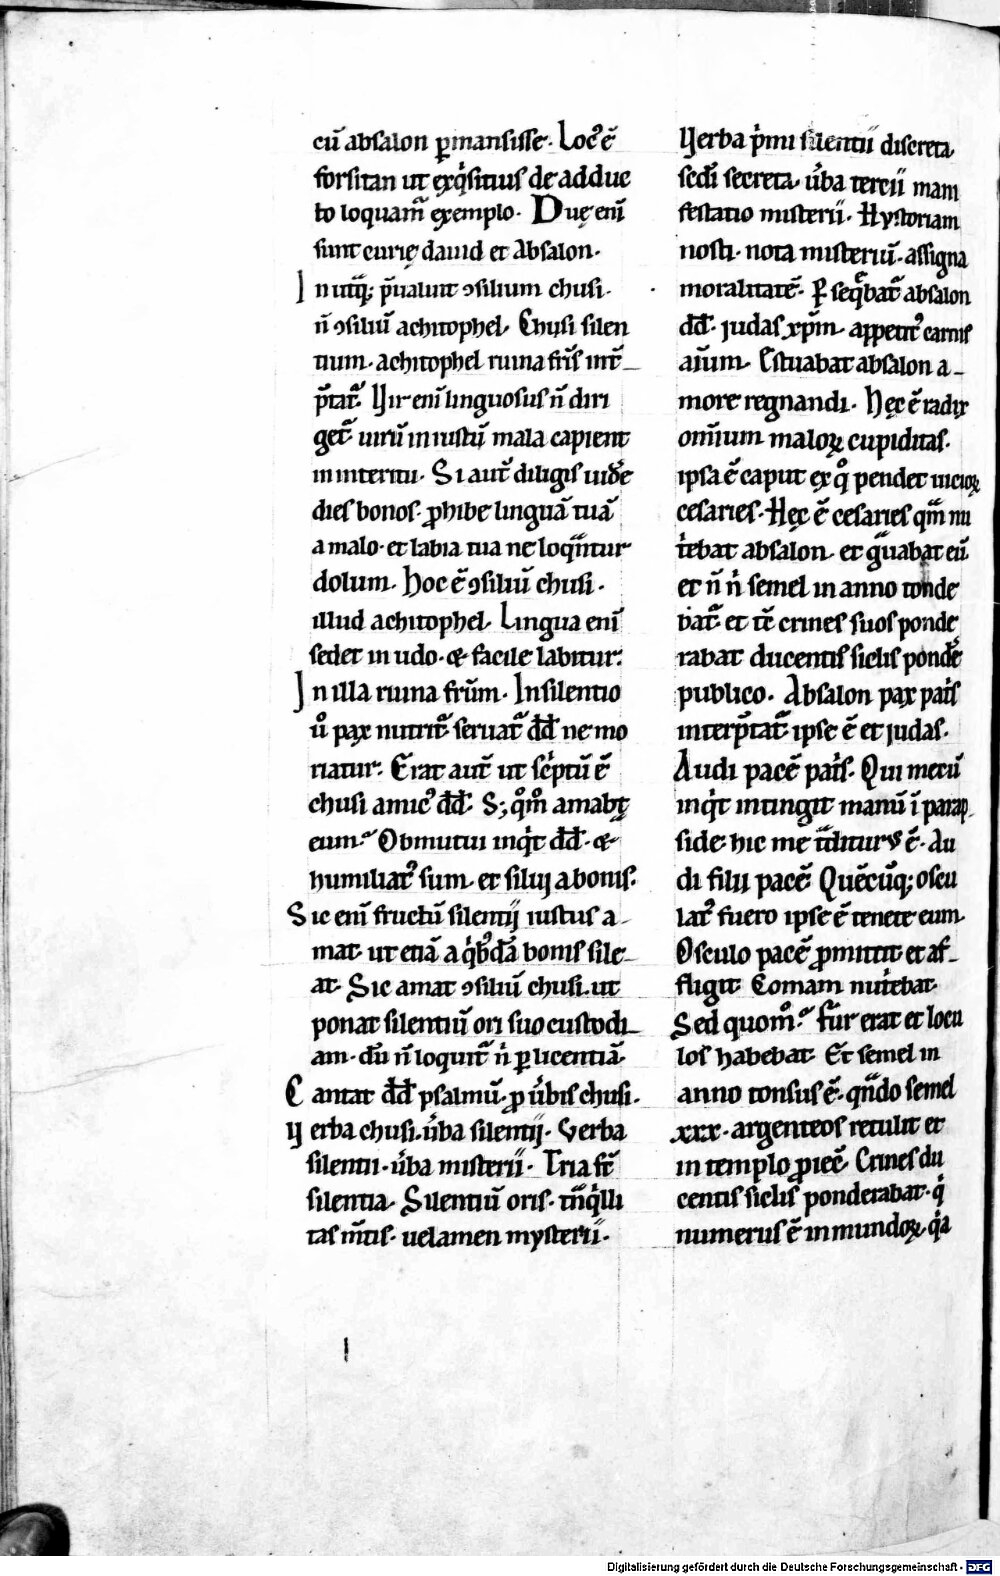 cū absalon ꝑmansisse. Locꝰ ē
forsitan ut exq̇situs de adduc
to loquam̄ exemplo. Duę eni̅
sunt curię dauid et absalon.
In utq̄ꝫ p̄ualuit ɔsilium chusi.
n̄ ɔsiliū achitophel. Chusi silen
tium. achitophel ruina fr̄is int̄_
p̄tat᷑. Vir eni̅ linguosus n̄ diri
get᷑ uirū iniustū mala capient
in interitu. Si aut̄ diligis uid̄e
dies bonos. ꝓhibe linguā tuā
a malo. et labia tua ne loqn̄tur
dolum. Hoc ē ɔsiliū chusi.
illud achitophel. Lingua eni̅
sedet in udo. & facile labitur.
In illa ruina frūm. In silentio
u̇ pax nutrit᷑. seruat᷑ dd̄ ne mo
riatur. Erat aut̄ ut sc̓ptū ē
chusi amicꝰ dd̄. Sꝫ qm̊ amabꝫ
eum. Obmutui inq̇t dd̄. &
humiliatꝰ sum. et silui a bonis.
Sic eni̅ fructū silentij iustus a_
mat. ut etiā a q̇bꝰdā bonis sile_
at. Sic amat ɔsiliū chusi. ut
ponat silentiū ori suo custodi_
am. dū n̄ loquit᷑ n̓ ꝑ licentiā.
Cantat dd̄ psalmū. ꝓ ūbis chusi.
Verba chusi. ūba silentij. Verba
silentii. ūba misterii. Tria st̄
silentia. Silentiū oris. tn̄q̇lli
tas m̄tis. uelamen mysterii.
Verba p̓mi silentii discreta
sed̓i secreta. ūba tercii mani
festatio misterii. Hystoriam
nosti. nota misteriū. assigna
moralitatē. ꝑseq̄bat᷑ absalon
dd̄. iudas xp̄m. appetitꝰ carnis
aīum. Estuabat absalon a_
more regnandi. Hęc ē radix
om̄ium maloꝝ cupiditas.
ipsa ē caput ex q̊ pendet uicioꝝ
cesaries. Hęc ē cesaries qm̄ nu
t̓ebat absalon. et g̓uabat eū
et n̄ n̓ semel in anno tonde
bat᷑. et tc̄ crines suos ponde
rabat ducentis siclis pond̓e
publico. Absalon pax pat̓s
interp̄tat᷑. ipse ē et iudas.
Audi pacē pat̓s. Qui mecū
inq̇t intingit manū ī parap_
side. hic me t̄diturꝰ ē. Au
di filii pacē. Quēcūqꝫ oscu
latꝰ fuero ipse ē tenete eum.
Osculo pacē ꝓmittit et af_
fligit. Comam nut̓ebat.
Sed quom̊. fur erat et locu
los habebat. Et semel in
anno tonsus ē. qn̄do semel
xxx. argenteos retulit et
in templo ꝓiec̄. Crines du
centis siclis ponderabat. q̇
numerus ē inmundoꝝ. q̇a